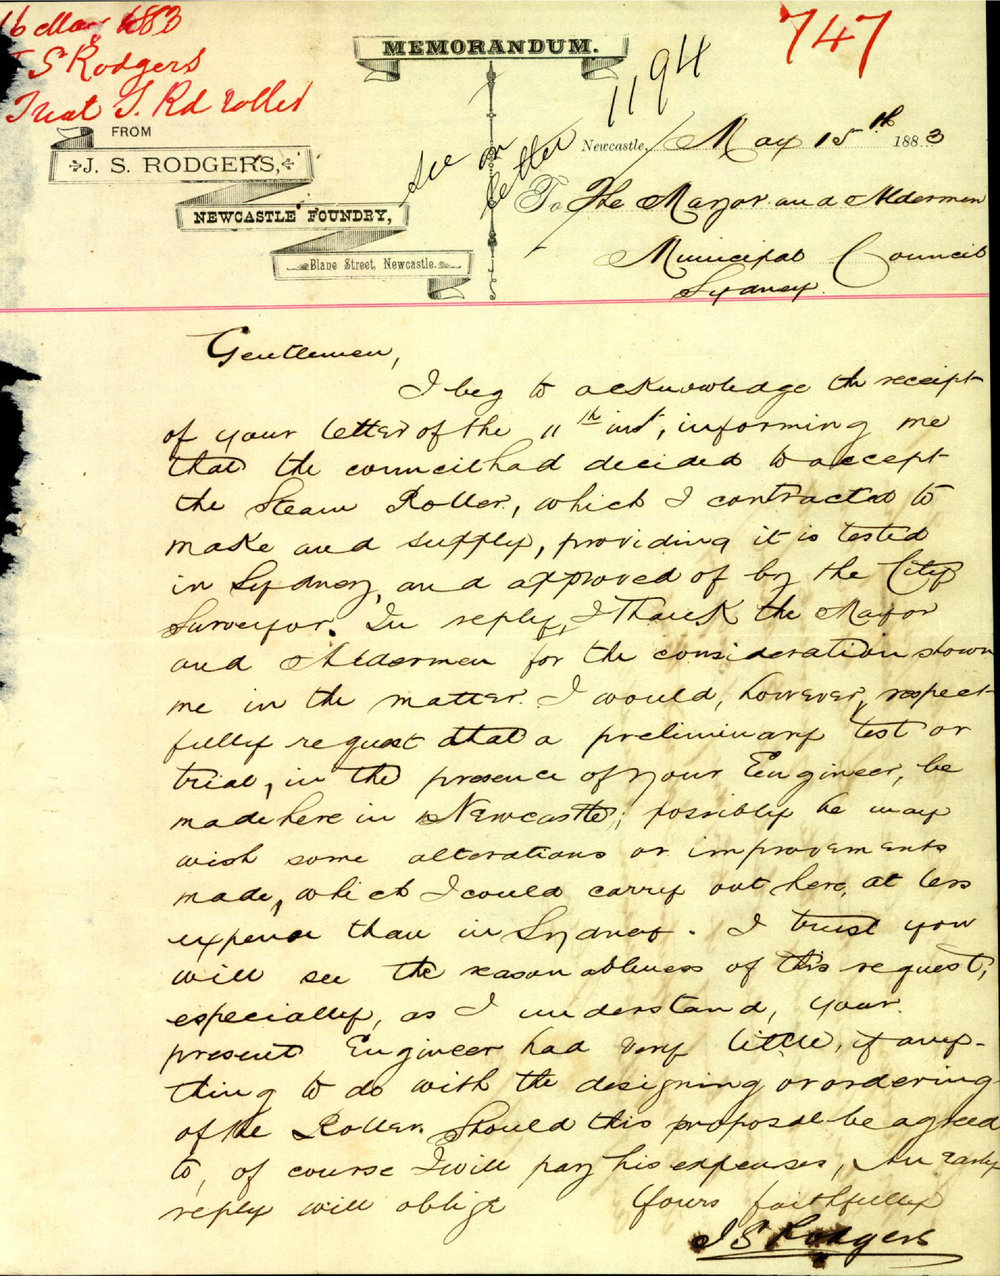 16 May 1883
J S Rodgers
Test S. Rd roller
747
1194
see on
letter
MEMORANDUM.
FROM
J. S. RODGERS,
NEWCASTLE FOUNDRY,
Blane Street, Newcastle.
Newcastle, May 15th 1883
To The Mayor and Aldermen
Municipal Council
Sydney.
Gentlemen,
I beg to acknowledge the receipt
of your letter of the 11th inst, informing me
that the council had decided to accept
the Steam Roller, which I contracted to
make and supply, providing it is tested
in Sydney, and approved of by the City
Surveyor. In reply, I thank the Mayor
and Aldermen for the consideration shown
me in the matter. I would, however, respect-
fully request that a preliminary test or
trial, in the presence of your Engineer, be
made here in Newcastle; possibly he may
wish some alterations or improvements
made, which I could carry out here, at less
expense than in Sydney. I trust you
will see the reasonableness of this request,
especially, as I understand, your
present Engineer had very little, if any-
thing to do with the designing or ordering
of the Roller. Should this proposal be agreed
to, of course I will pay his expenses, An early
reply will oblige
Yours faithfully
J S Rodgers